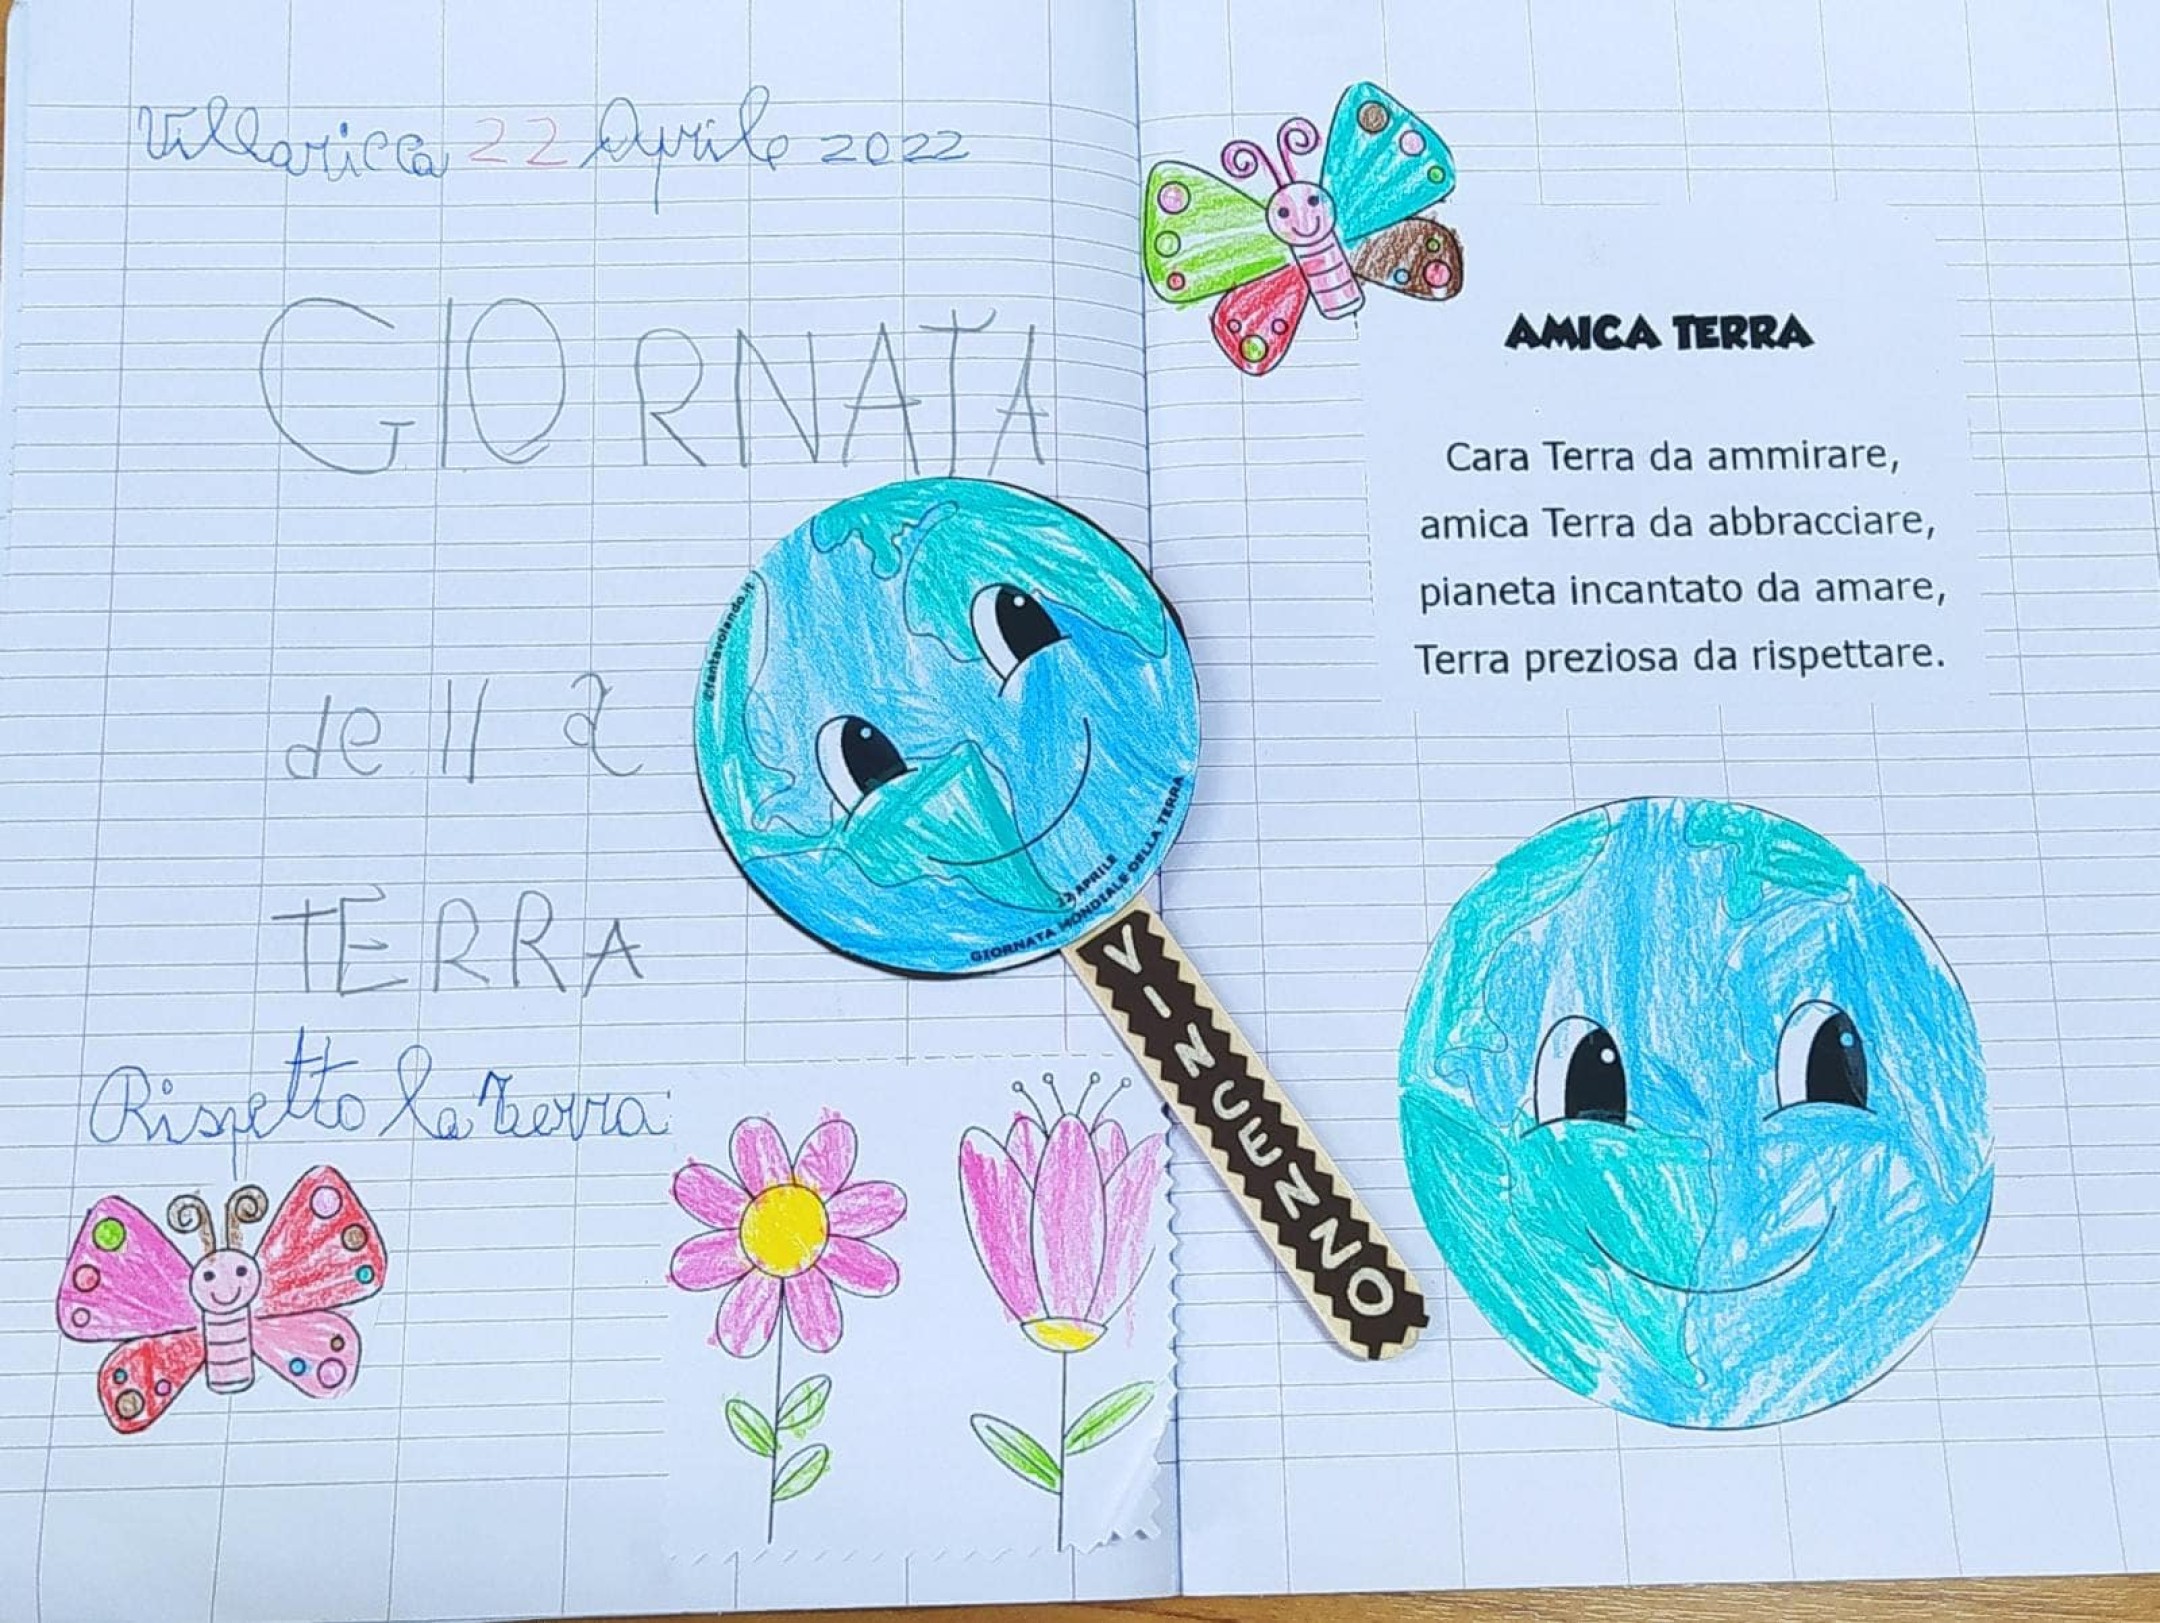 Villarica 22 Aprile 2022
GIORNATA
della
TERRA
Rispetto la terra
©fantavolando.it
22 APRILE
GIORNATA MONDIALE DELLA TERRA
VINCENZO
AMICA TERRA
Cara Terra da ammirare,
amica Terra da abbracciare,
pianeta incantato da amare,
Terra preziosa da rispettare.